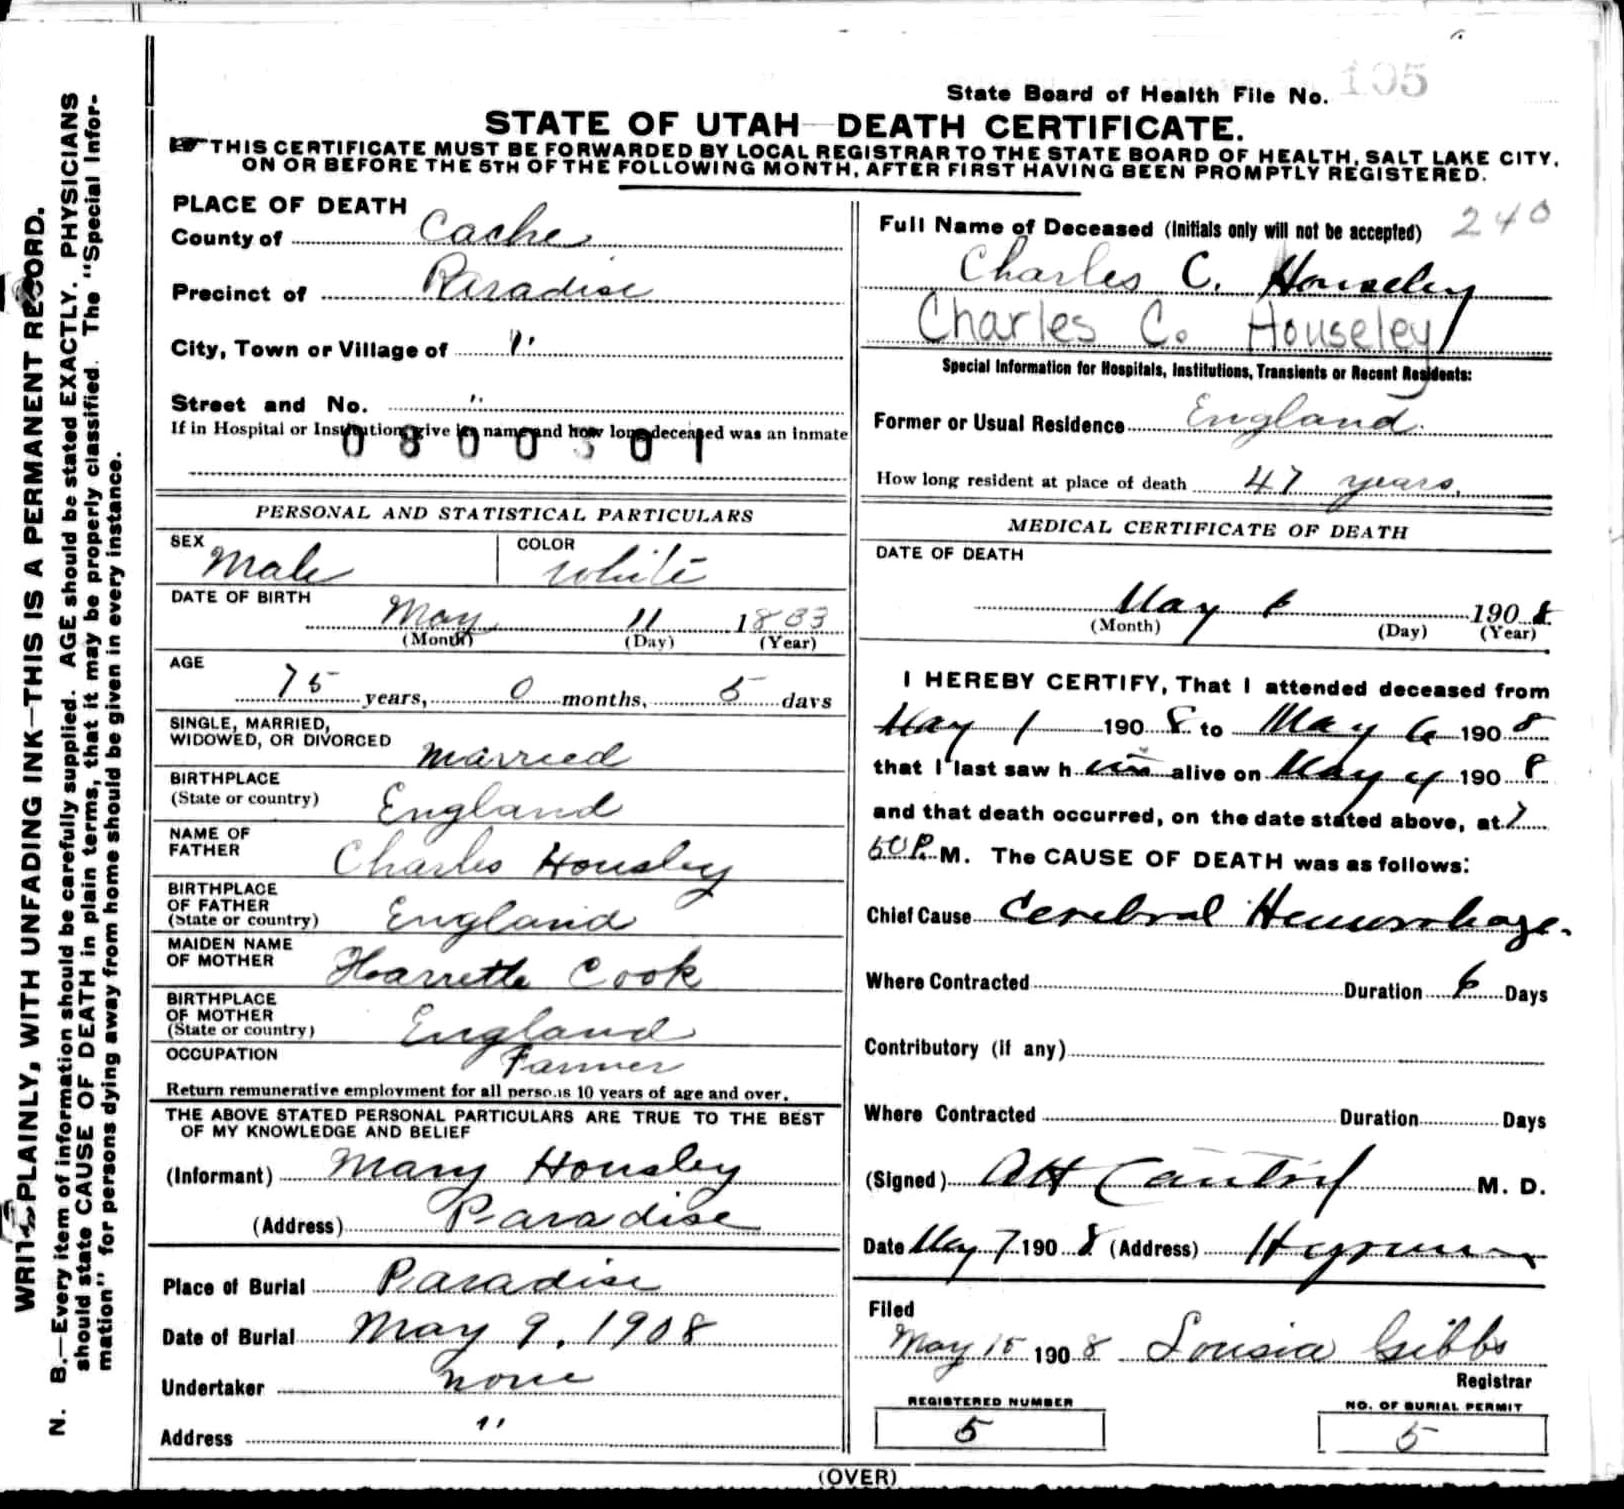 State Board of Health File No. 105
STATE OF UTAH—DEATH CERTIFICATE.
THIS CERTIFICATE MUST BE FORWARDED BY LOCAL REGISTRAR TO THE STATE BOARD OF HEALTH, SALT LAKE CITY,
ON OR BEFORE THE 5TH OF THE FOLLOWING MONTH, AFTER FIRST HAVING BEEN PROMPTLY REGISTERED.
WRITE PLAINLY, WITH UNFADING INK—THIS IS A PERMANENT RECORD.
N. B.—Every item of information should be carefully supplied. AGE should be stated EXACTLY. PHYSICIANS
should state CAUSE OF DEATH in plain terms, that it may be properly classified. The "Special Infor-
mation" for persons dying away from home should be given in every instance.
PLACE OF DEATH
County of Cache
Precinct of Paradise
City, Town or Village of "
Street and No. "
If in Hospital or Institution, give its name and how long deceased was an inmate
0800301
PERSONAL AND STATISTICAL PARTICULARS
SEX Male COLOR White
DATE OF BIRTH May 11 1833
(Month) (Day) (Year)
AGE
75 years, 0 months, 5 days
SINGLE, MARRIED,
WIDOWED, OR DIVORCED Married
BIRTHPLACE
(State or country) England
NAME OF
FATHER Charles Housley
BIRTHPLACE
OF FATHER
(State or country) England
MAIDEN NAME
OF MOTHER Harrette Cook
BIRTHPLACE
OF MOTHER
(State or country) England
OCCUPATION Farmer
Return remunerative employment for all persons 10 years of age and over.
THE ABOVE STATED PERSONAL PARTICULARS ARE TRUE TO THE BEST
OF MY KNOWLEDGE AND BELIEF
(Informant) Mary Housley
(Address) Paradise
Place of Burial Paradise
Date of Burial May 9, 1908
Undertaker none
Address "
Full Name of Deceased (Initials only will not be accepted) 240
Charles C. Houseley
Charles C. Houseley
Special Information for Hospitals, Institutions, Transients or Recent Residents:
Former or Usual Residence England
How long resident at place of death 47 years.
MEDICAL CERTIFICATE OF DEATH
DATE OF DEATH
May 6 1908
(Month) (Day) (Year)
I HEREBY CERTIFY, That I attended deceased from
May 1 1908 to May 6 1908
that I last saw him alive on May 4 1908
and that death occurred, on the date stated above, at 7
50 P. M. The CAUSE OF DEATH was as follows:
Chief Cause Cerebral Hemorrhage.
Where Contracted Duration 6 Days
Contributory (if any)
Where Contracted Duration Days
(Signed) M. D.
Date May 7 1908 (Address) Hyrum
Filed
May 15 1908 Lousia Gibbs
Registrar
REGISTERED NUMBER
5
NO. OF BURIAL PERMIT
5
(OVER)